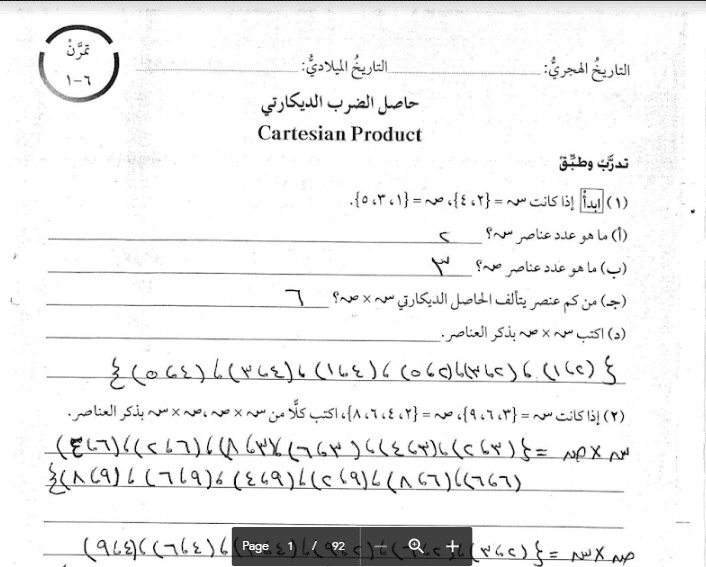 تمرَّنْ
٦-١
التاريخُ الهجريُّ: التاريخُ الميلاديُّ:
حاصل الضرب الديكارتي
Cartesian Product
تدرَّبْ وطبِّقْ
(١) ابدأ إذا كانت سـ = {٢، ٤}، صـ = {١، ٣، ٥}.
(أ) ما هو عدد عناصر سـ؟ ٢
(ب) ما هو عدد عناصر صـ؟ ٣
(جـ) من كم عنصر يتألف الحاصل الديكارتي سـ × صـ؟ ٦
(د) اكتب سـ × صـ بذكر العناصر.
{ (٢،١) ، (٢،٣) ، (٢،٥) ، (٤،١) ، (٤،٣) ، (٤،٥) }
(٢) إذا كانت سـ = {٣، ٦، ٩}، صـ = {٢، ٤، ٦، ٨}، اكتب كلًّا من سـ × صـ، صـ × سـ بذكر العناصر.
سـ × صـ = { (٣،٢) ، (٣،٤) ، (٣،٦) ، (٣،٨) ، (٦،٢) ، (٦،٤)
(٦،٦) ، (٦،٨) ، (٩،٢) ، (٩،٤) ، (٩،٦) ، (٩،٨) }
صـ × سـ = { (٢،٣) ، (٤،٦) ، (٤،٩)
Page 1 / 92 − +